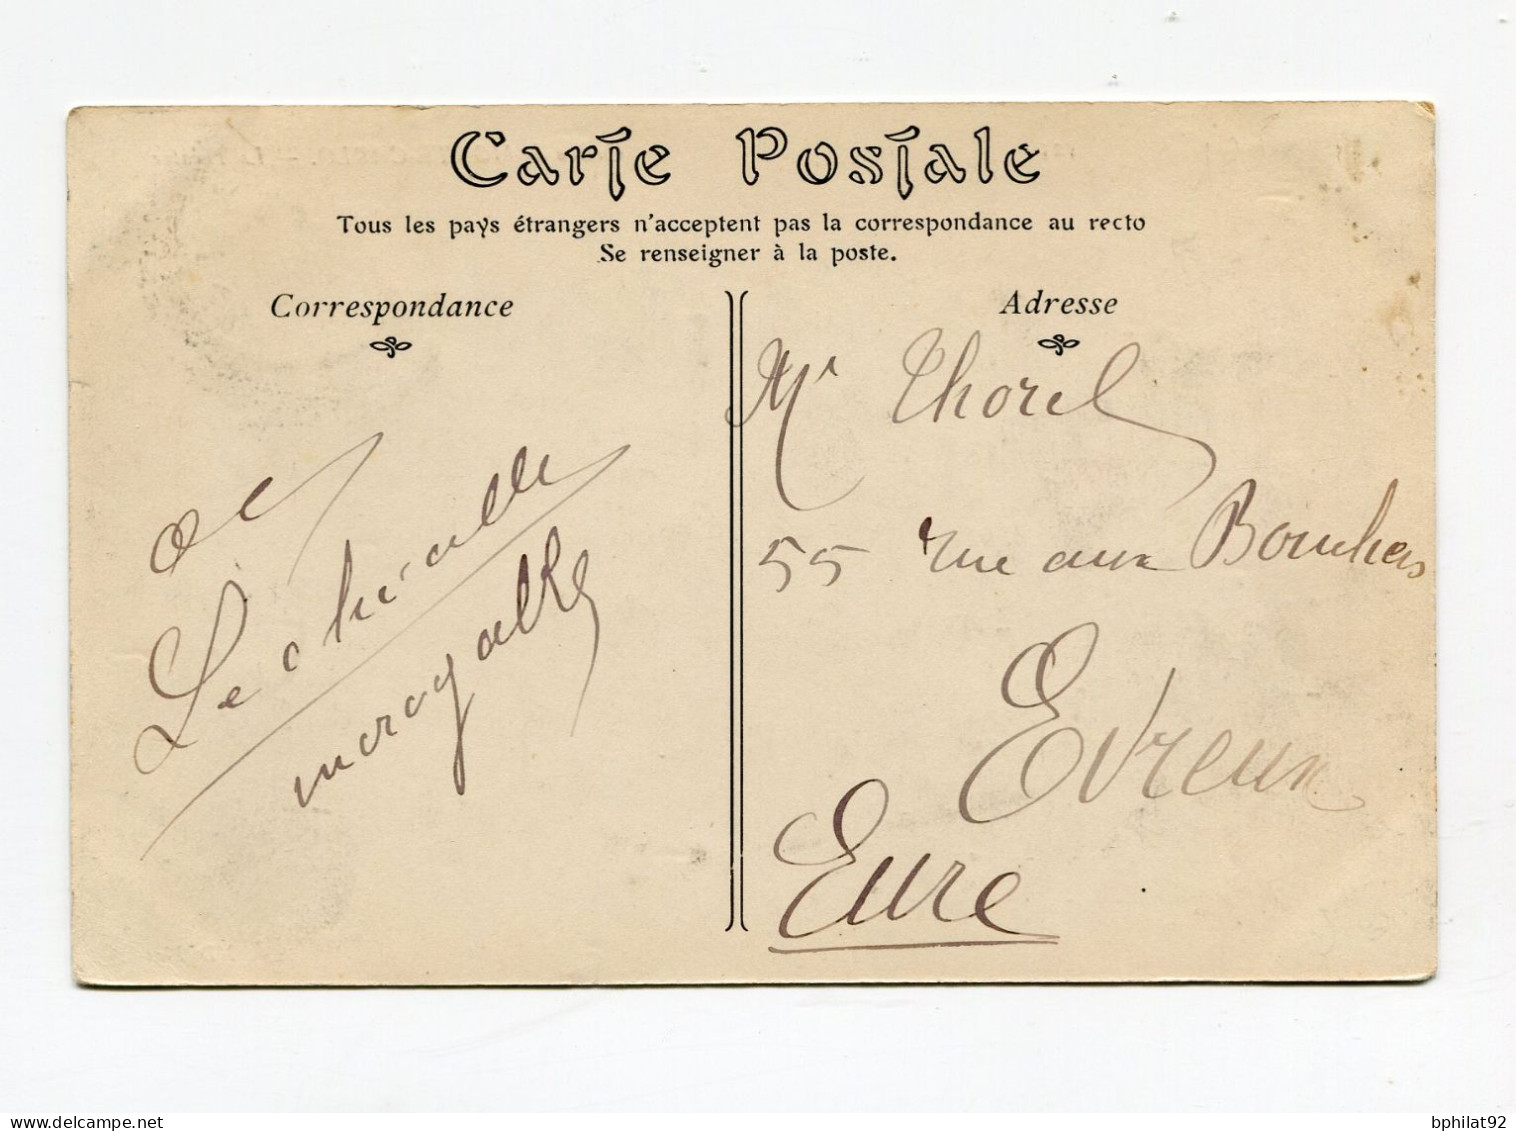 Carte Postale
Tous les pays étrangers n'acceptent pas la correspondance au recto
Se renseigner à la poste.
Correspondance
Adresse
Mr Thorel
55 rue aux Bouchers
Evreux
Eure
Le
delcampe.net
bphilat92